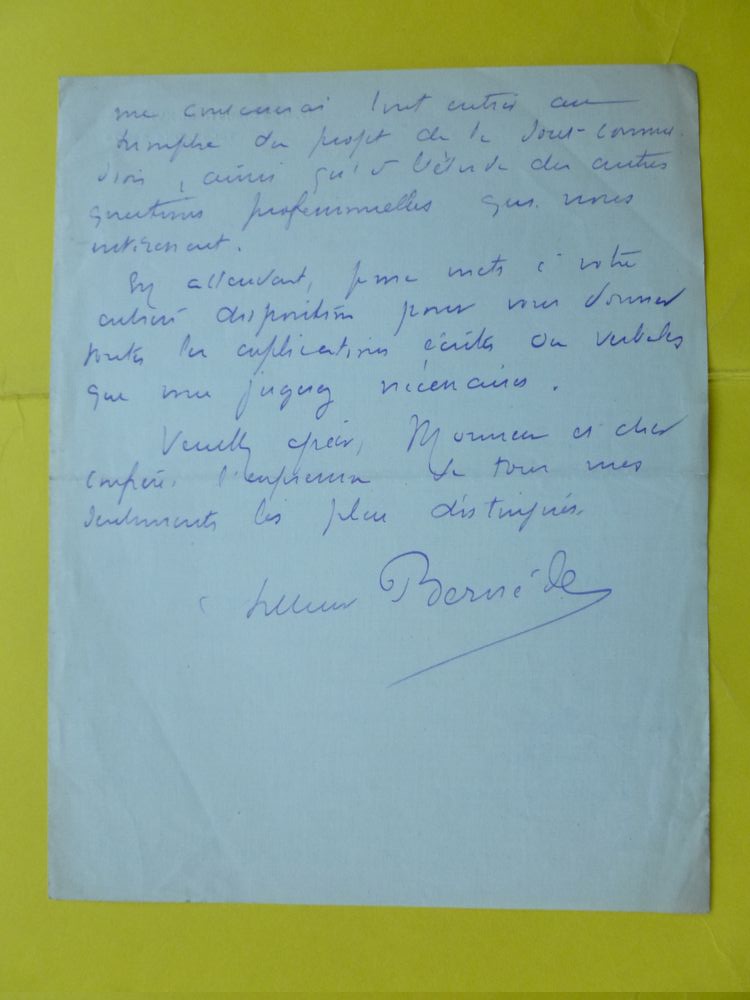 me consacrerai tout entier au
triomphe du projet de la Sous-Commis
sion, ainsi qu'à l'étude des autres
questions professionnelles qui nous
intéressent.
En attendant, je me mets à votre
entière disposition pour vous donner
toutes les explications écrites ou verbales
que vous jugerez nécessaires.
Veuillez agréer, Monsieur et cher
confrère, l'expression de tous mes
sentiments les plus distingués.
Bernède